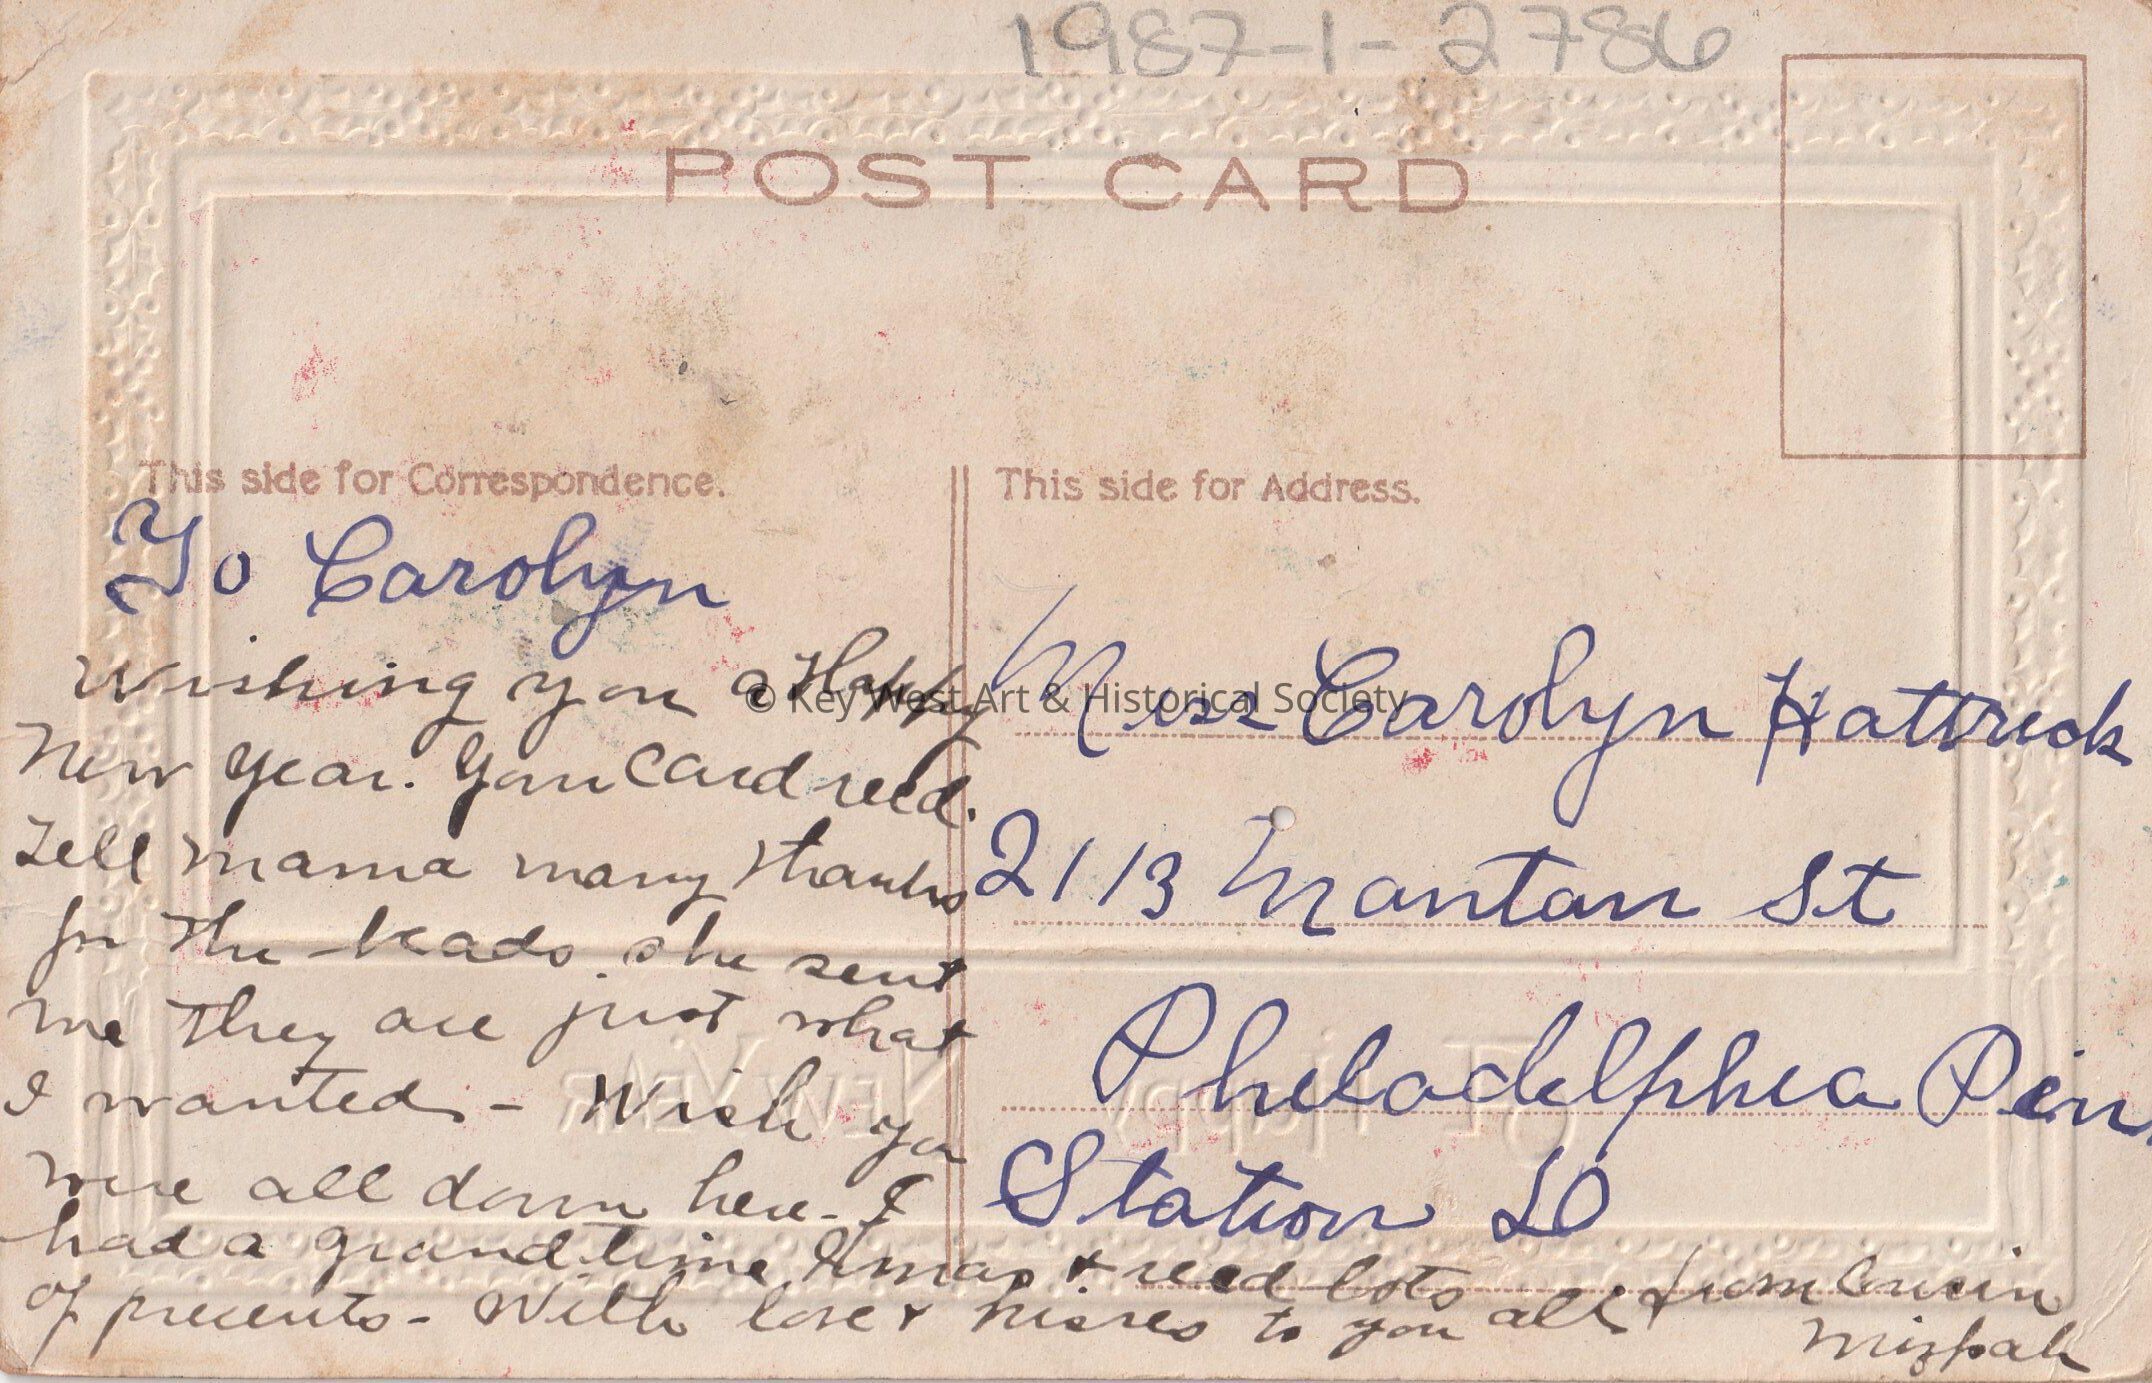 1987-1-2786
POST CARD
This side for Correspondence.
To Carolyn
Wishing you a Happy
New Year. Your Card recd.
Tell mama many thanks
for the beads she sent
me They are just what
I wanted - Wish you
were all down here - I
had a grand time Xmas + recd lots
of presents - With love + kisses to you all from Cousin
Mizpah
This side for Address.
Miss Carolyn Hattrick
2113 Mantan St
Philadelphia Pen
Station D
© Key West Art & Historical Society